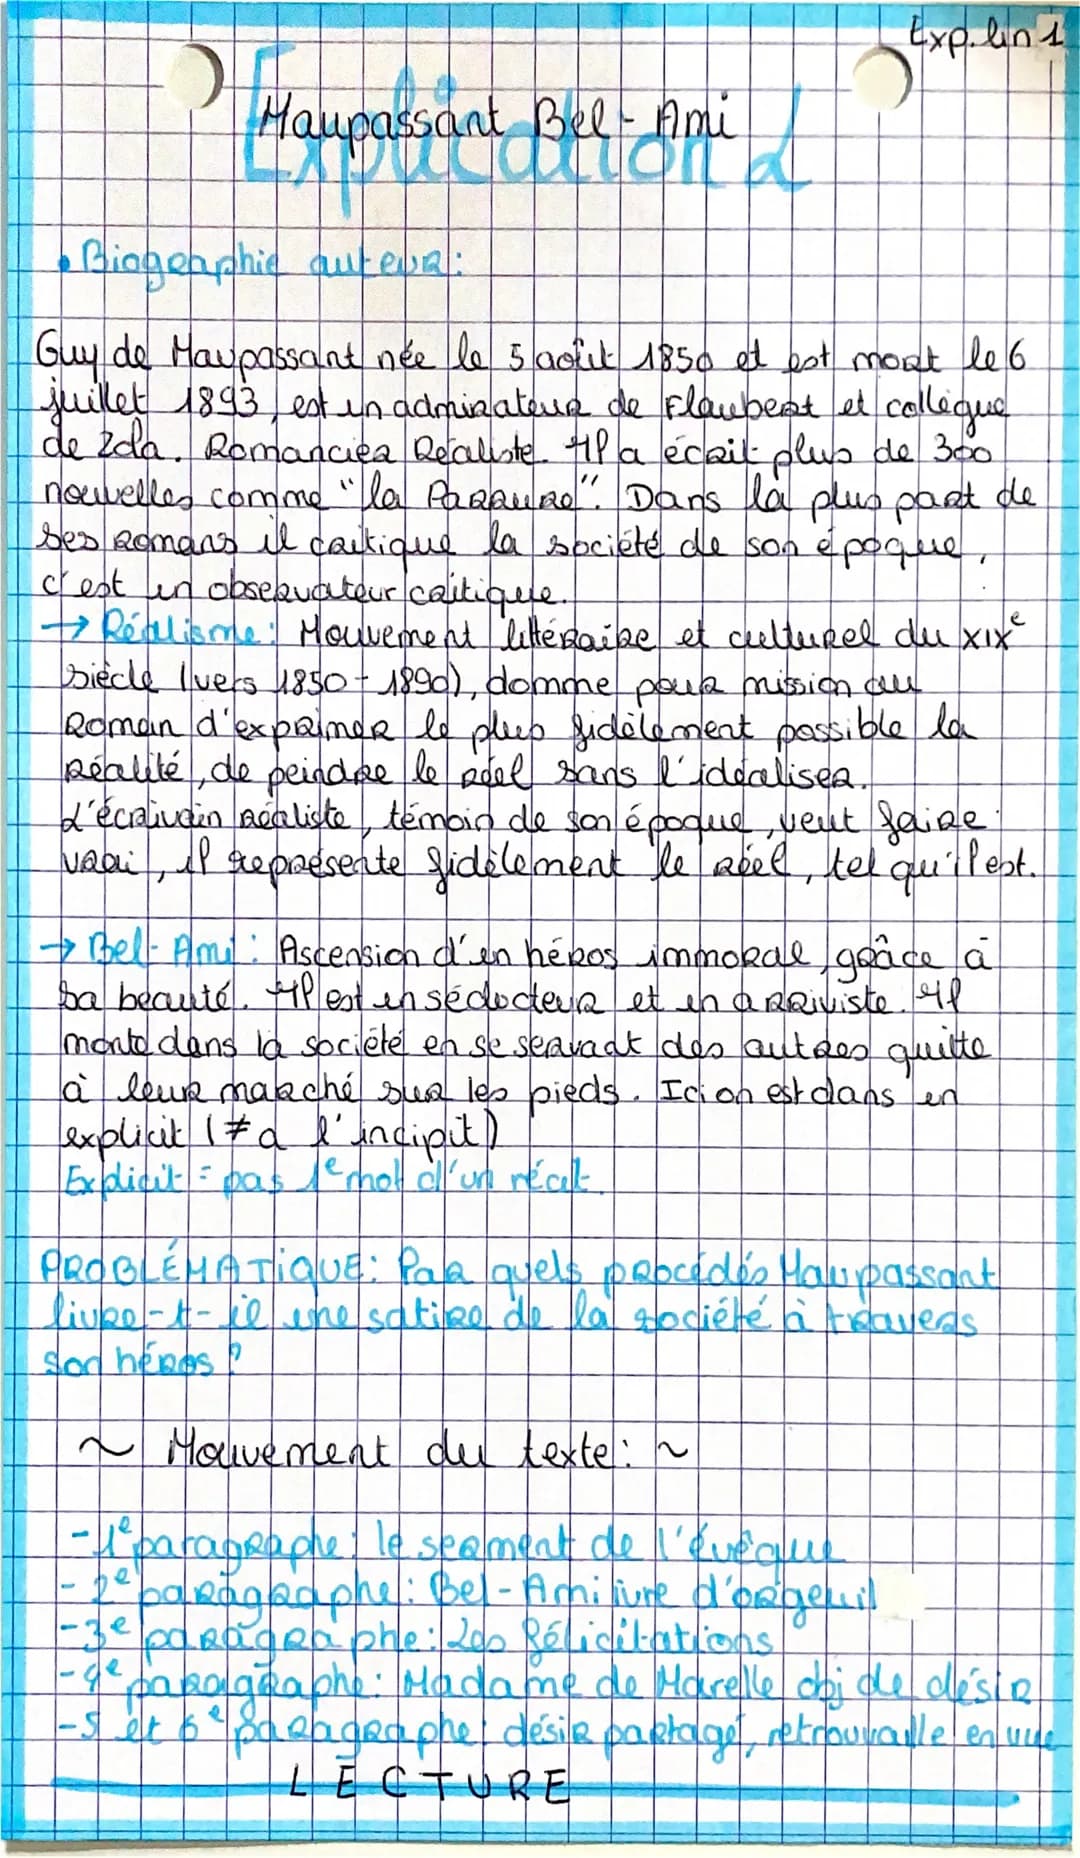 Exp. lin 1
Explication 2
Maupassant Bel-Ami
• Biographie auteur:
Guy de Maupassant née le 5 août 1850 et est mort le 6
juillet 1893, est un admirateur de Flaubert et collègue
de Zola. Romancier Réaliste. Il a écrit plus de 300
nouvelles comme "la Parrure". Dans la plus part de
ses romans il critique la société de son époque,
c'est un observateur critique.
→ Réalisme: Mouvement littéraire et culturel du XIXe
siècle (vers 1850-1890), domme pour mission au
Roman d'exprimer le plus fidèlement possible la
Réalité, de peindre le réel sans l'idéaliser.
L'écrivain réaliste, témoin de son époque, veut faire
vrai, il représente fidèlement le réel, tel qu'il est.
→ Bel-Ami: Ascension d'un héros immoral, grâce à
sa beauté. Il est un sédocteur et un arriviste. Il
monte dans la société en se servant des autres quitte
à leur marché sur les pieds. Ici on est dans un
explicit (≠ a l'incipit)
Explicit = pas 1e mot d'un récit.
PROBLÉMATIQUE: Par quels procédés Maupassant
livre-t-il une satire de la société à travers
son héros?
~ Mouvement du texte: ~
-1e paragraphe: le serment de l'évêque
- 2e paragraphe: Bel-Ami ivre d'orgeuil
-3e paragraphe: Les félicitations
-4e paragraphe: Madame de Marelle obj de désir
-5 et 6e paragraphe: désir partagé, retrouvaille en vue
LECTURE